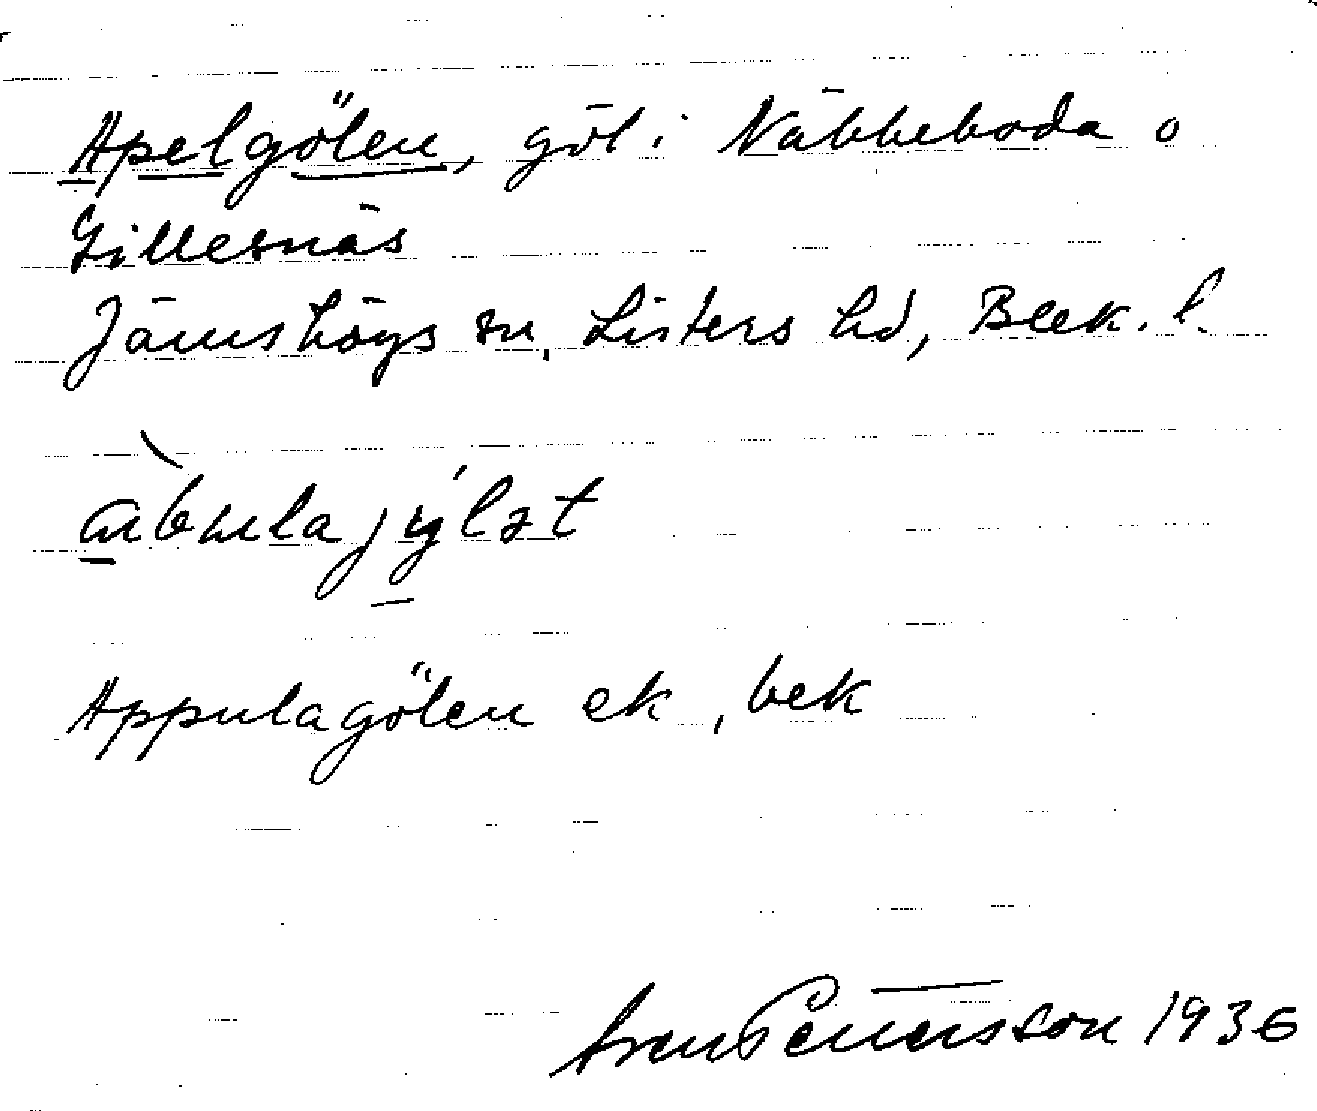 Apelgölen, göl i Näbbeboda o
Gillesnäs
Jämshögs sn, Listers hd, Blek. l.
Appulagölen ek, bek
Sven Pettersson 1936